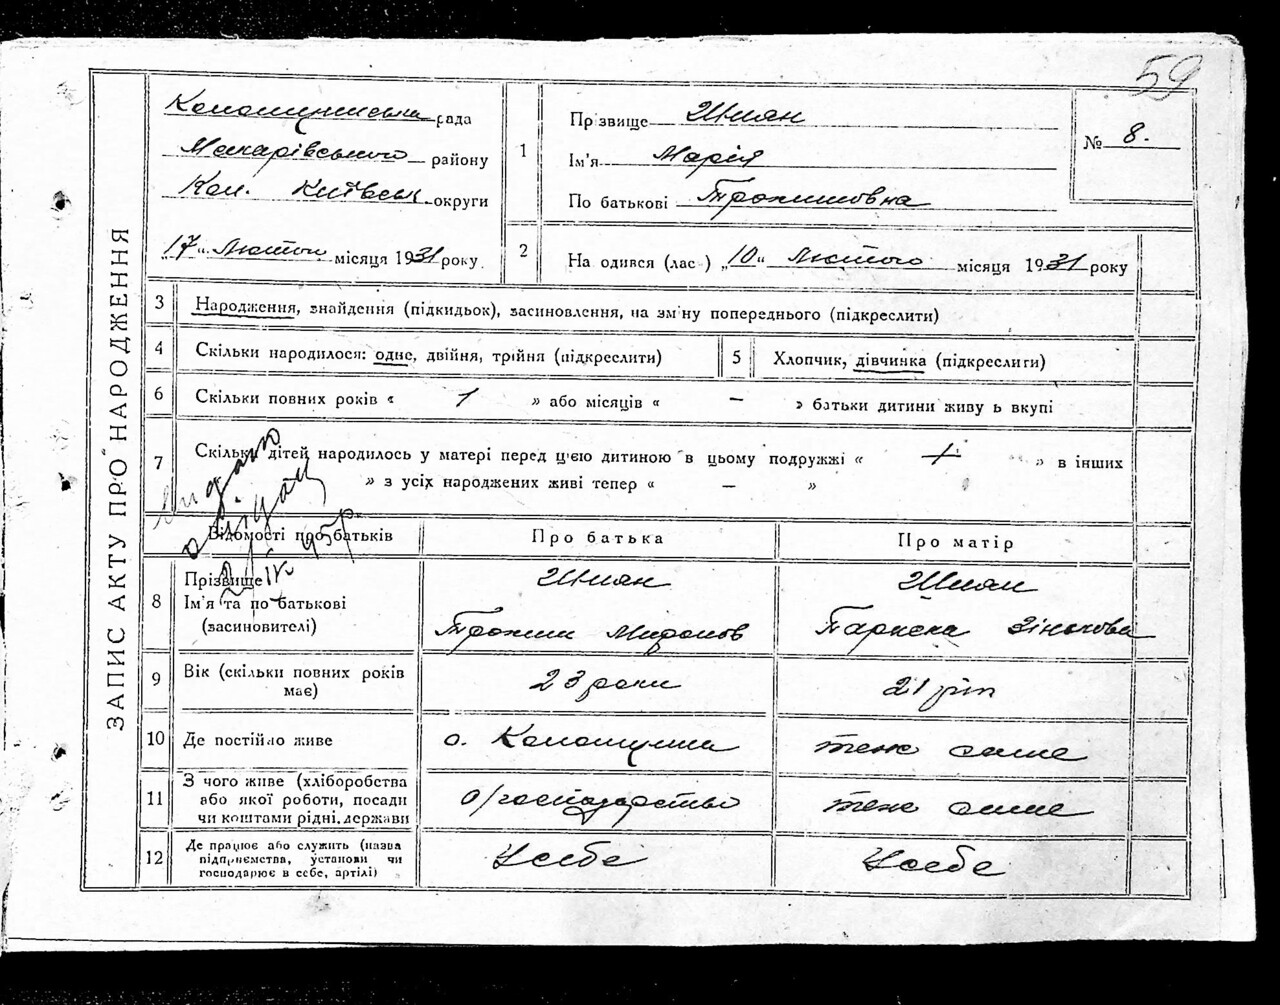 59
ЗАПИС АКТУ ПРО НАРОДЖЕННЯ
рада
Макарівського району
Кол. Київськ округи
17" Лютого місяця 1931 року
1
Прізвище Шиян
Ім'я Марія
По батькові Трохимовна
№ 8.
2
На одився (лас ) „10" Лютого місяця 1931 року
3 Народження, знайдення (підкидьок), засиновлення, на зм ну попереднього (підкреслити)
4 Скільки народилося: одне, двійня, трійня (підкреслити)
5 Хлопчик, дівчинка (підкреслиги)
6 Скільки повних років « 1 » або місяців « — » батьки дитини живу ь вкупі
7 Скільки дітей народилось у матері перед ц'єю дитиною в цьому подружжі « » в інших
» з усіх народжених живі тепер « — »
Відомості про батьків
Про батька
Про матір
8 Прізвище
Ім'я та по батькові
(засиновителі)
Шиян
Трохим Миронов
Шиян
Параска Зінькова
9 Вік (скільки повних років
має)
23 роки
21 рік
10 Де постійно живе
теж саме
11 З чого живе (хліборобства
або якої роботи, посади
чи коштами рідні, держави
с/господарство
теж саме
12 Де працює або служить (назва
підприємства, установи чи
господарює в себе, артілі)
У себе
У себе